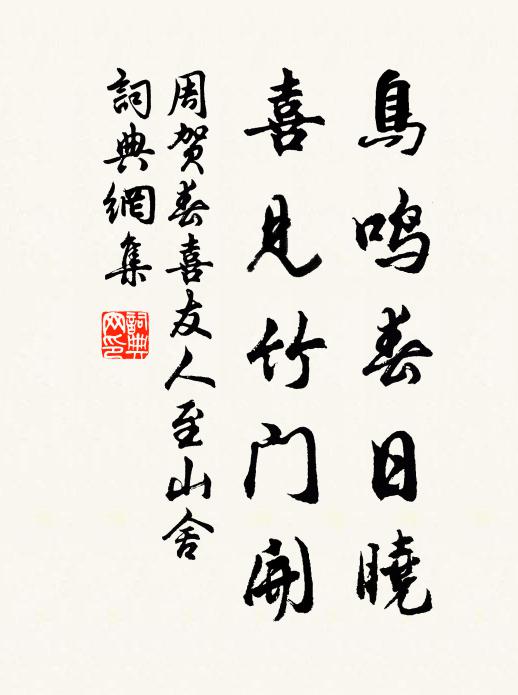 鳥鳴春日曉
喜見竹門開
周賀春喜友人至山舍
詞典網集
詞典网印